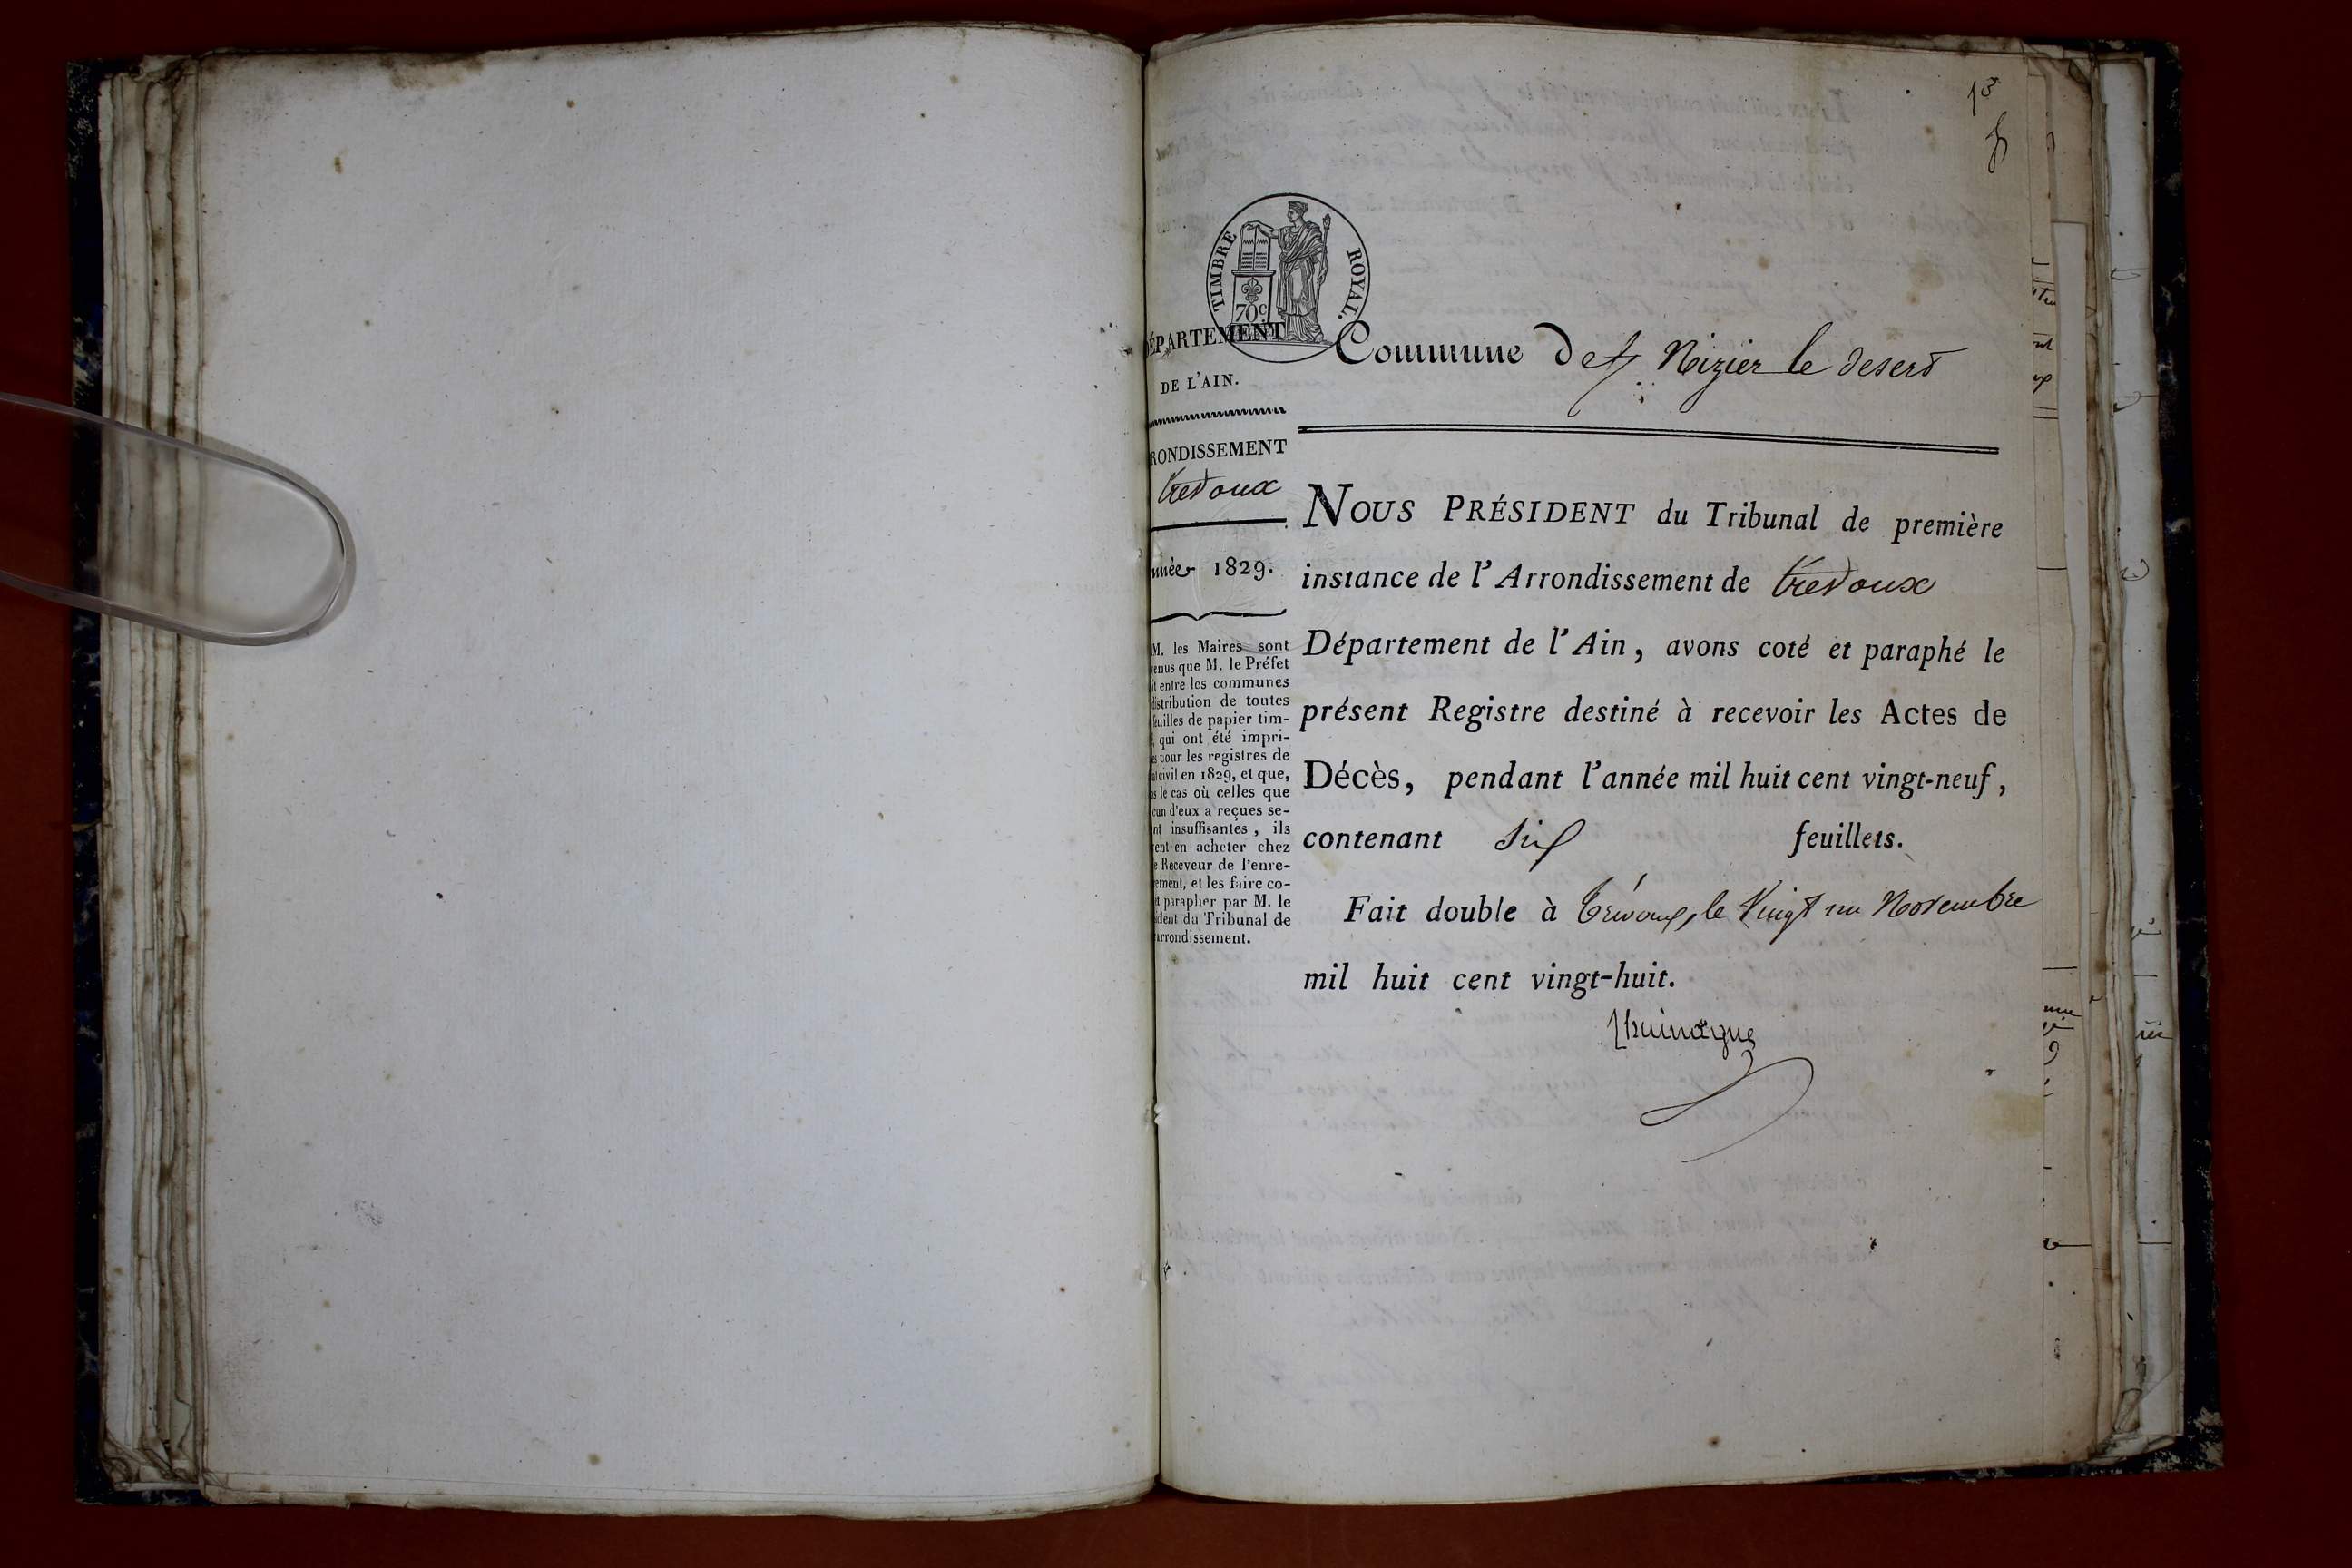 TIMBRE ROYAL.
70c
ÉPARTEMENT
DE L'AIN.
RONDISSEMENT
trevoux
nnée 1829.
M. les Maires sont
enus que M. le Préfet
t entre les communes
distribution de toutes
feuilles de papier tim-
, qui ont été impri-
s pour les registres de
at civil en 1829, et que,
s le cas où celles que
cun d'eux a reçues se-
nt insuffisantes, ils
ent en acheter chez
e Receveur de l'enre-
ement, et les faire co-
t parapher par M. le
ident du Tribunal de
arrondissement.
Commune de St Nizier le desert
NOUS PRÉSIDENT du Tribunal de première
instance de l'Arrondissement de trevoux
Département de l'Ain, avons coté et paraphé le
présent Registre destiné à recevoir les Actes de
Décès, pendant l'année mil huit cent vingt-neuf,
contenant Six feuillets.
Fait double à Trévoux, le Vingt un Novembre
mil huit cent vingt-huit.